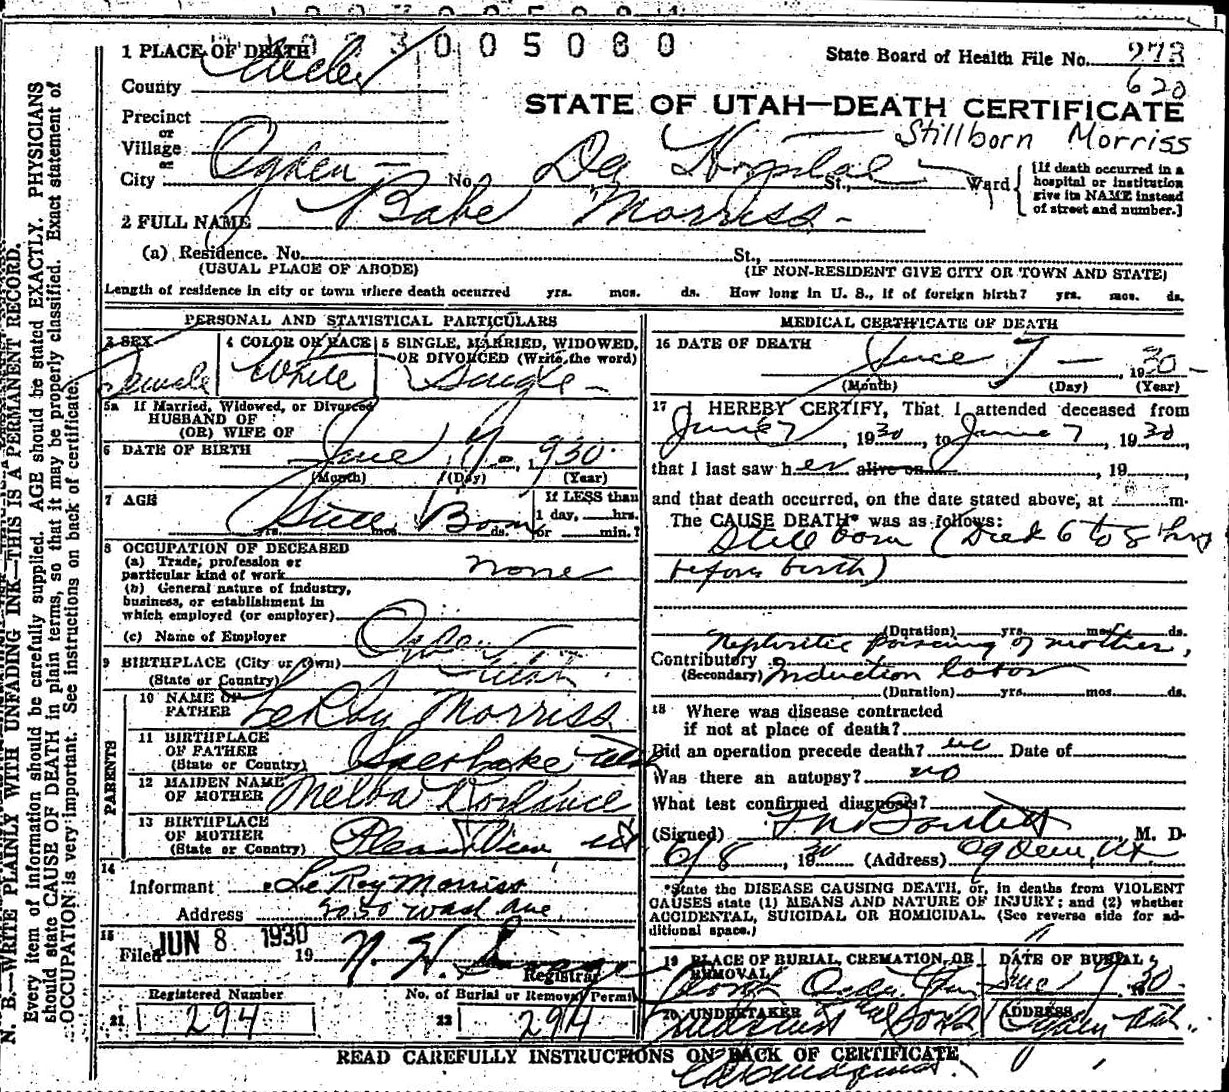 1023005080
1 PLACE OF DEATH
State Board of Health File No. 273
620
County Weber
STATE OF UTAH—DEATH CERTIFICATE
Precinct
or
Village
or
Stillborn Morriss
City Ogden No. Dee Hospital St., Ward
[If death occurred in a
hospital or institution
give its NAME instead
of street and number.]
2 FULL NAME Babe Morriss
(a) Residence. No. St.,
(USUAL PLACE OF ABODE) (IF NON-RESIDENT GIVE CITY OR TOWN AND STATE)
Length of residence in city or town where death occurred yrs. mos. ds. How long in U. S., if of foreign birth? yrs. mos. ds.
PERSONAL AND STATISTICAL PARTICULARS
3 SEX 4 COLOR OR RACE 5 SINGLE, MARRIED, WIDOWED,
OR DIVORCED (Write the word)
Female White Single
5a If Married, Widowed, or Divorced
HUSBAND OF
(OR) WIFE OF
6 DATE OF BIRTH June 7 1930
(Month) (Day) (Year)
7 AGE If LESS than
Still Born 1 day, hrs.
yrs. mos. ds. or min.?
8 OCCUPATION OF DECEASED
(a) Trade, profession or
particular kind of work none
(b) General nature of industry,
business, or establishment in
which employed (or employer)
(c) Name of Employer
9 BIRTHPLACE (City or town) Ogden
(State or Country) Utah
PARENTS
10 NAME OF
FATHER LeRoy Morriss
11 BIRTHPLACE
OF FATHER
(State or Country) Salt Lake Utah
12 MAIDEN NAME
OF MOTHER Melba
13 BIRTHPLACE
OF MOTHER
(State or Country) Pleasant View Ut
14
Informant LeRoy Morriss
Address Wash Ave
15
Filed JUN 8 1930 19 N. H. Savage
Registrar
Registered Number No. of Burial or Removal Permit
21 294 22 294
MEDICAL CERTIFICATE OF DEATH
16 DATE OF DEATH June 7 — 1930
(Month) (Day) (Year)
17 I HEREBY CERTIFY, That I attended deceased from
June 7, 1930, to June 7, 1930
that I last saw her alive on , 19
and that death occurred, on the date stated above, at m.
The CAUSE DEATH* was as follows:
Still born (Died 6 to 8 hrs
before birth)
(Duration) yrs. mos. ds.
Nephritic poisoning of mother,
Contributory
(Secondary) Induction labor
(Duration) yrs. mos. ds.
18 Where was disease contracted
if not at place of death?
Did an operation precede death? no Date of
Was there an autopsy? no
What test confirmed diagnosis?
(Signed) Bartlett, M. D.
6/8, 1930 (Address) Ogden, Ut.
*State the DISEASE CAUSING DEATH, or, in deaths from VIOLENT
CAUSES state (1) MEANS AND NATURE OF INJURY; and (2) whether
ACCIDENTAL, SUICIDAL OR HOMICIDAL. (See reverse side for ad-
ditional space.)
19 PLACE OF BURIAL, CREMATION, OR
REMOVAL DATE OF BURIAL
North Ogden June 9 1930
20 UNDERTAKER ADDRESS
Lindquist & Sons Ogden Utah
READ CAREFULLY INSTRUCTIONS ON BACK OF CERTIFICATE
N. B.—WRITE PLAINLY WITH UNFADING INK—THIS IS A PERMANENT RECORD.
Every item of information should be carefully supplied. AGE should be stated EXACTLY. PHYSICIANS
should state CAUSE OF DEATH in plain terms, so that it may be properly classified. Exact statement of
OCCUPATION is very important. See instructions on back of certificate.